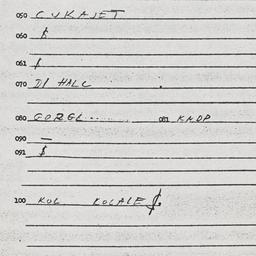 050 CUKAJET
060 $
061 $
070 DI HALL
080 GORGL..... 081 KNOP
090 —
091 $
100 KOL KOLALE $.